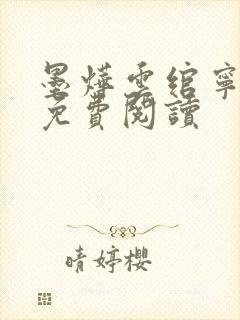 墨燁雲綰寧
免費閱讀
晴婷櫻